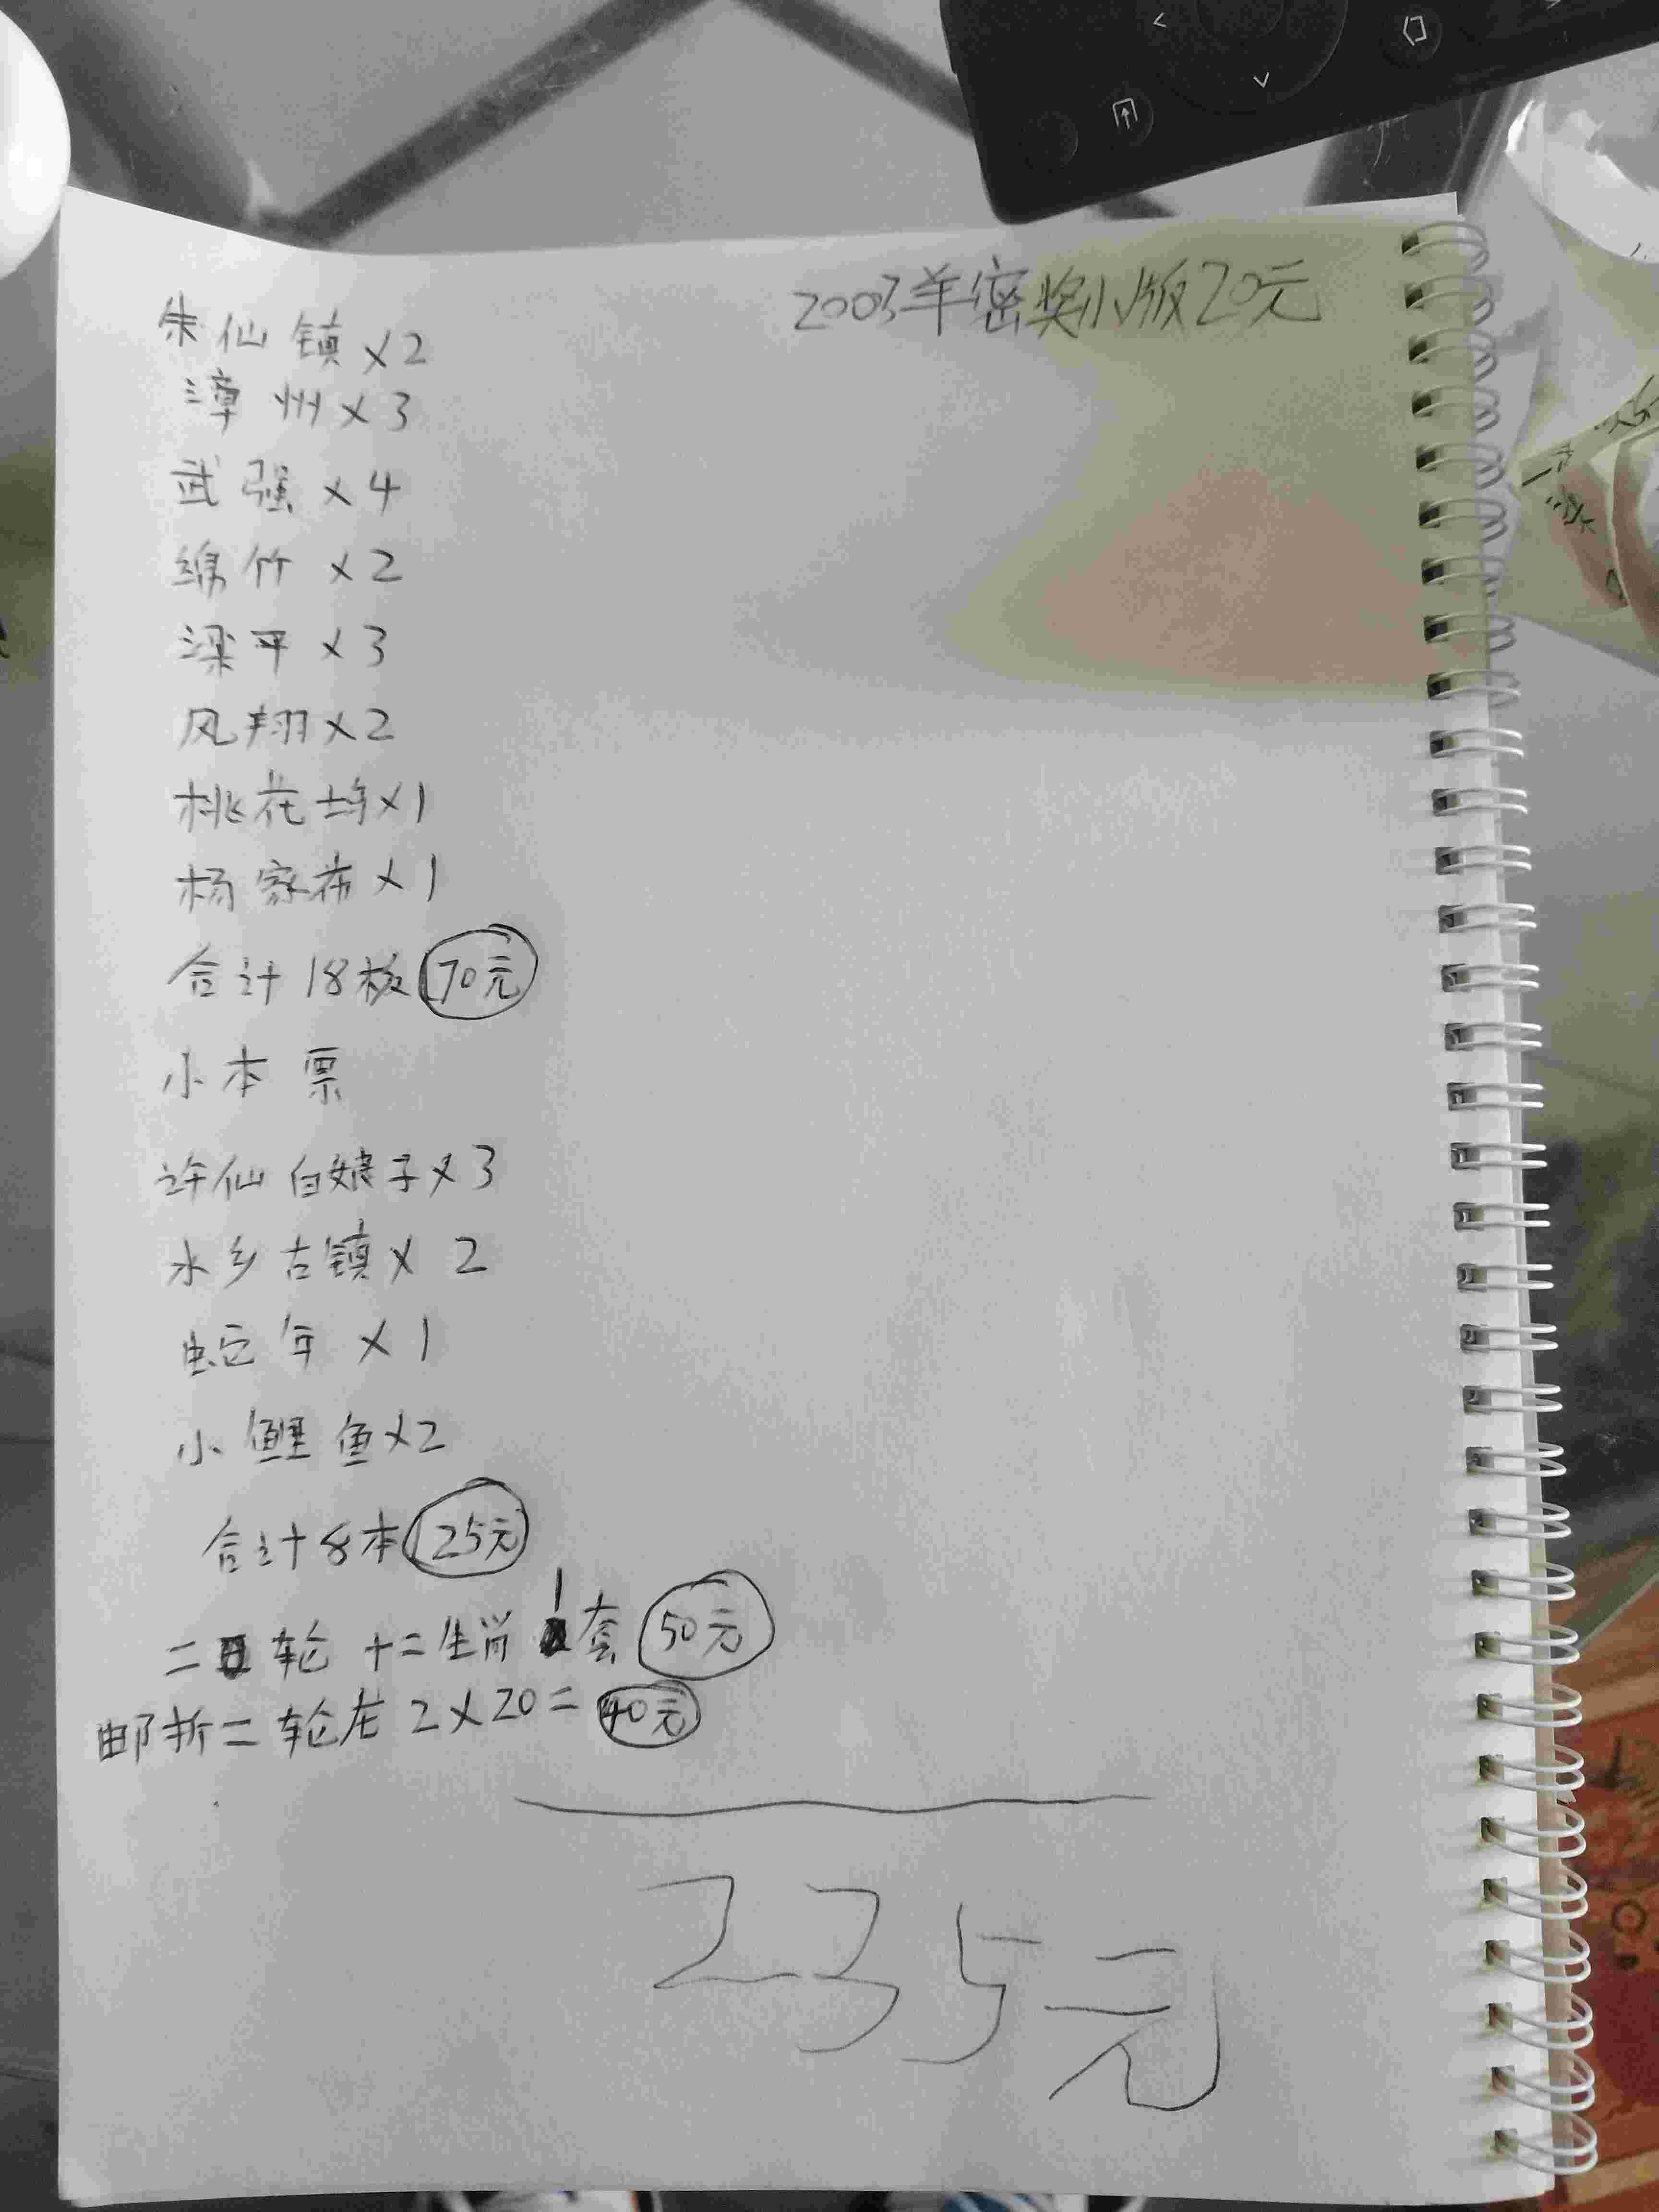 2003羊密奖小版20元
朱仙镇×2
漳州×3
武强×4
绵竹×2
梁平×3
凤翔×2
桃花坞×1
杨家布×1
合计18板 70元
小本票
许仙白娘子×3
水乡古镇×2
蛇年×1
小鲤鱼×2
合计8本 125元
二轮十二生肖1套 50元
邮折二轮龙2×20=40元
235元